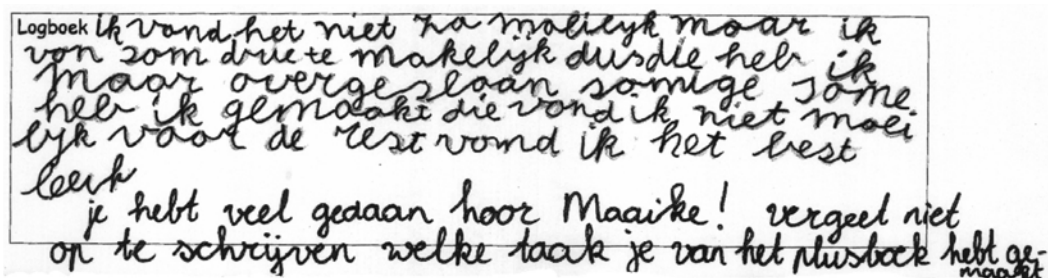 Logboek ik vond het niet zo moeilijk maar ik
von som drie te makelijk dus die heb ik
maar overgeslaan somige some
heb ik gemaakt die vond ik niet moei
lijk voor de rest vond ik het best
leeuk
je hebt veel gedaan hoor Maaike! vergeet niet
op te schrijven welke taak je van het plusboek hebt ge-
maakt